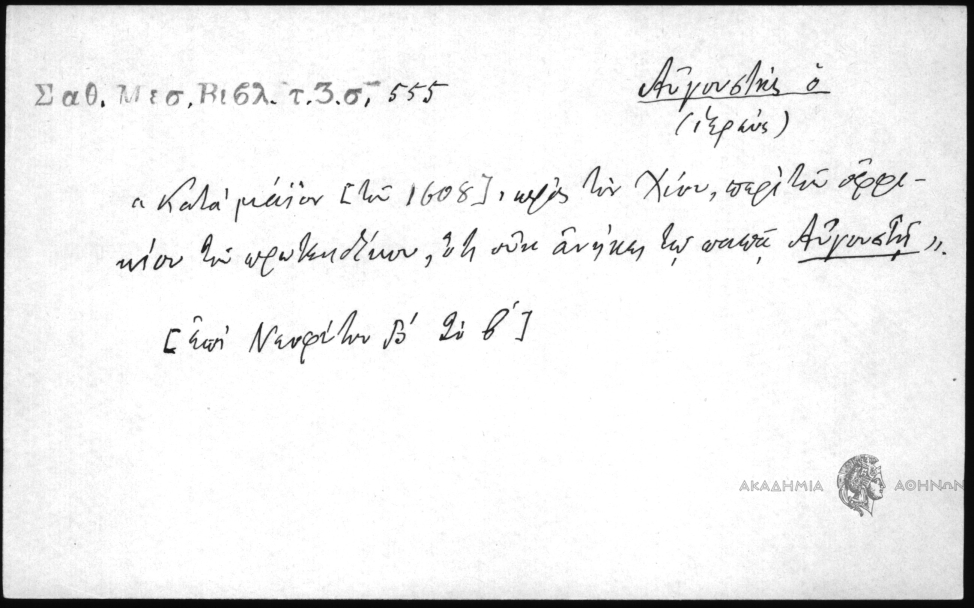 Σαθ. Μεσ. Βιβλ. τ. 3. σ. 555
Αὐγουστῆς ὁ
(ἱερεύς)
« Κατὰ μάϊον [τοῦ 1608], πρὸς τὸν Χίου, περὶ τοῦ ὀφφι-
κίου τοῦ πρωτεκδίκου, ὅτι οὐκ ἀνήκει τῷ παπᾷ Αὐγουστῇ ».
[ἐπὶ Νεοφύτου Β΄ τὸ β΄]
ΑΚΑΔΗΜΙΑ ΑΘΗΝΩΝ